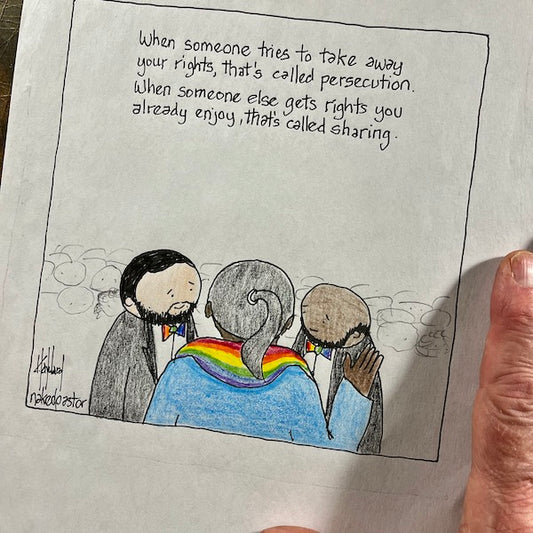 When someone tries to take away
your rights, that's called persecution.
When someone else gets rights you
already enjoy, that's called sharing.
nakedpastor